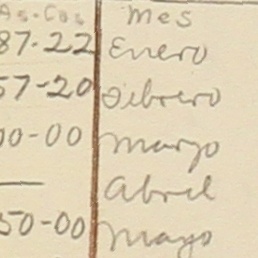 As. Cos Mes
87-22 Enero
57-20 Febrero
00-00 Marzo
— Abril
50-00 Mayo